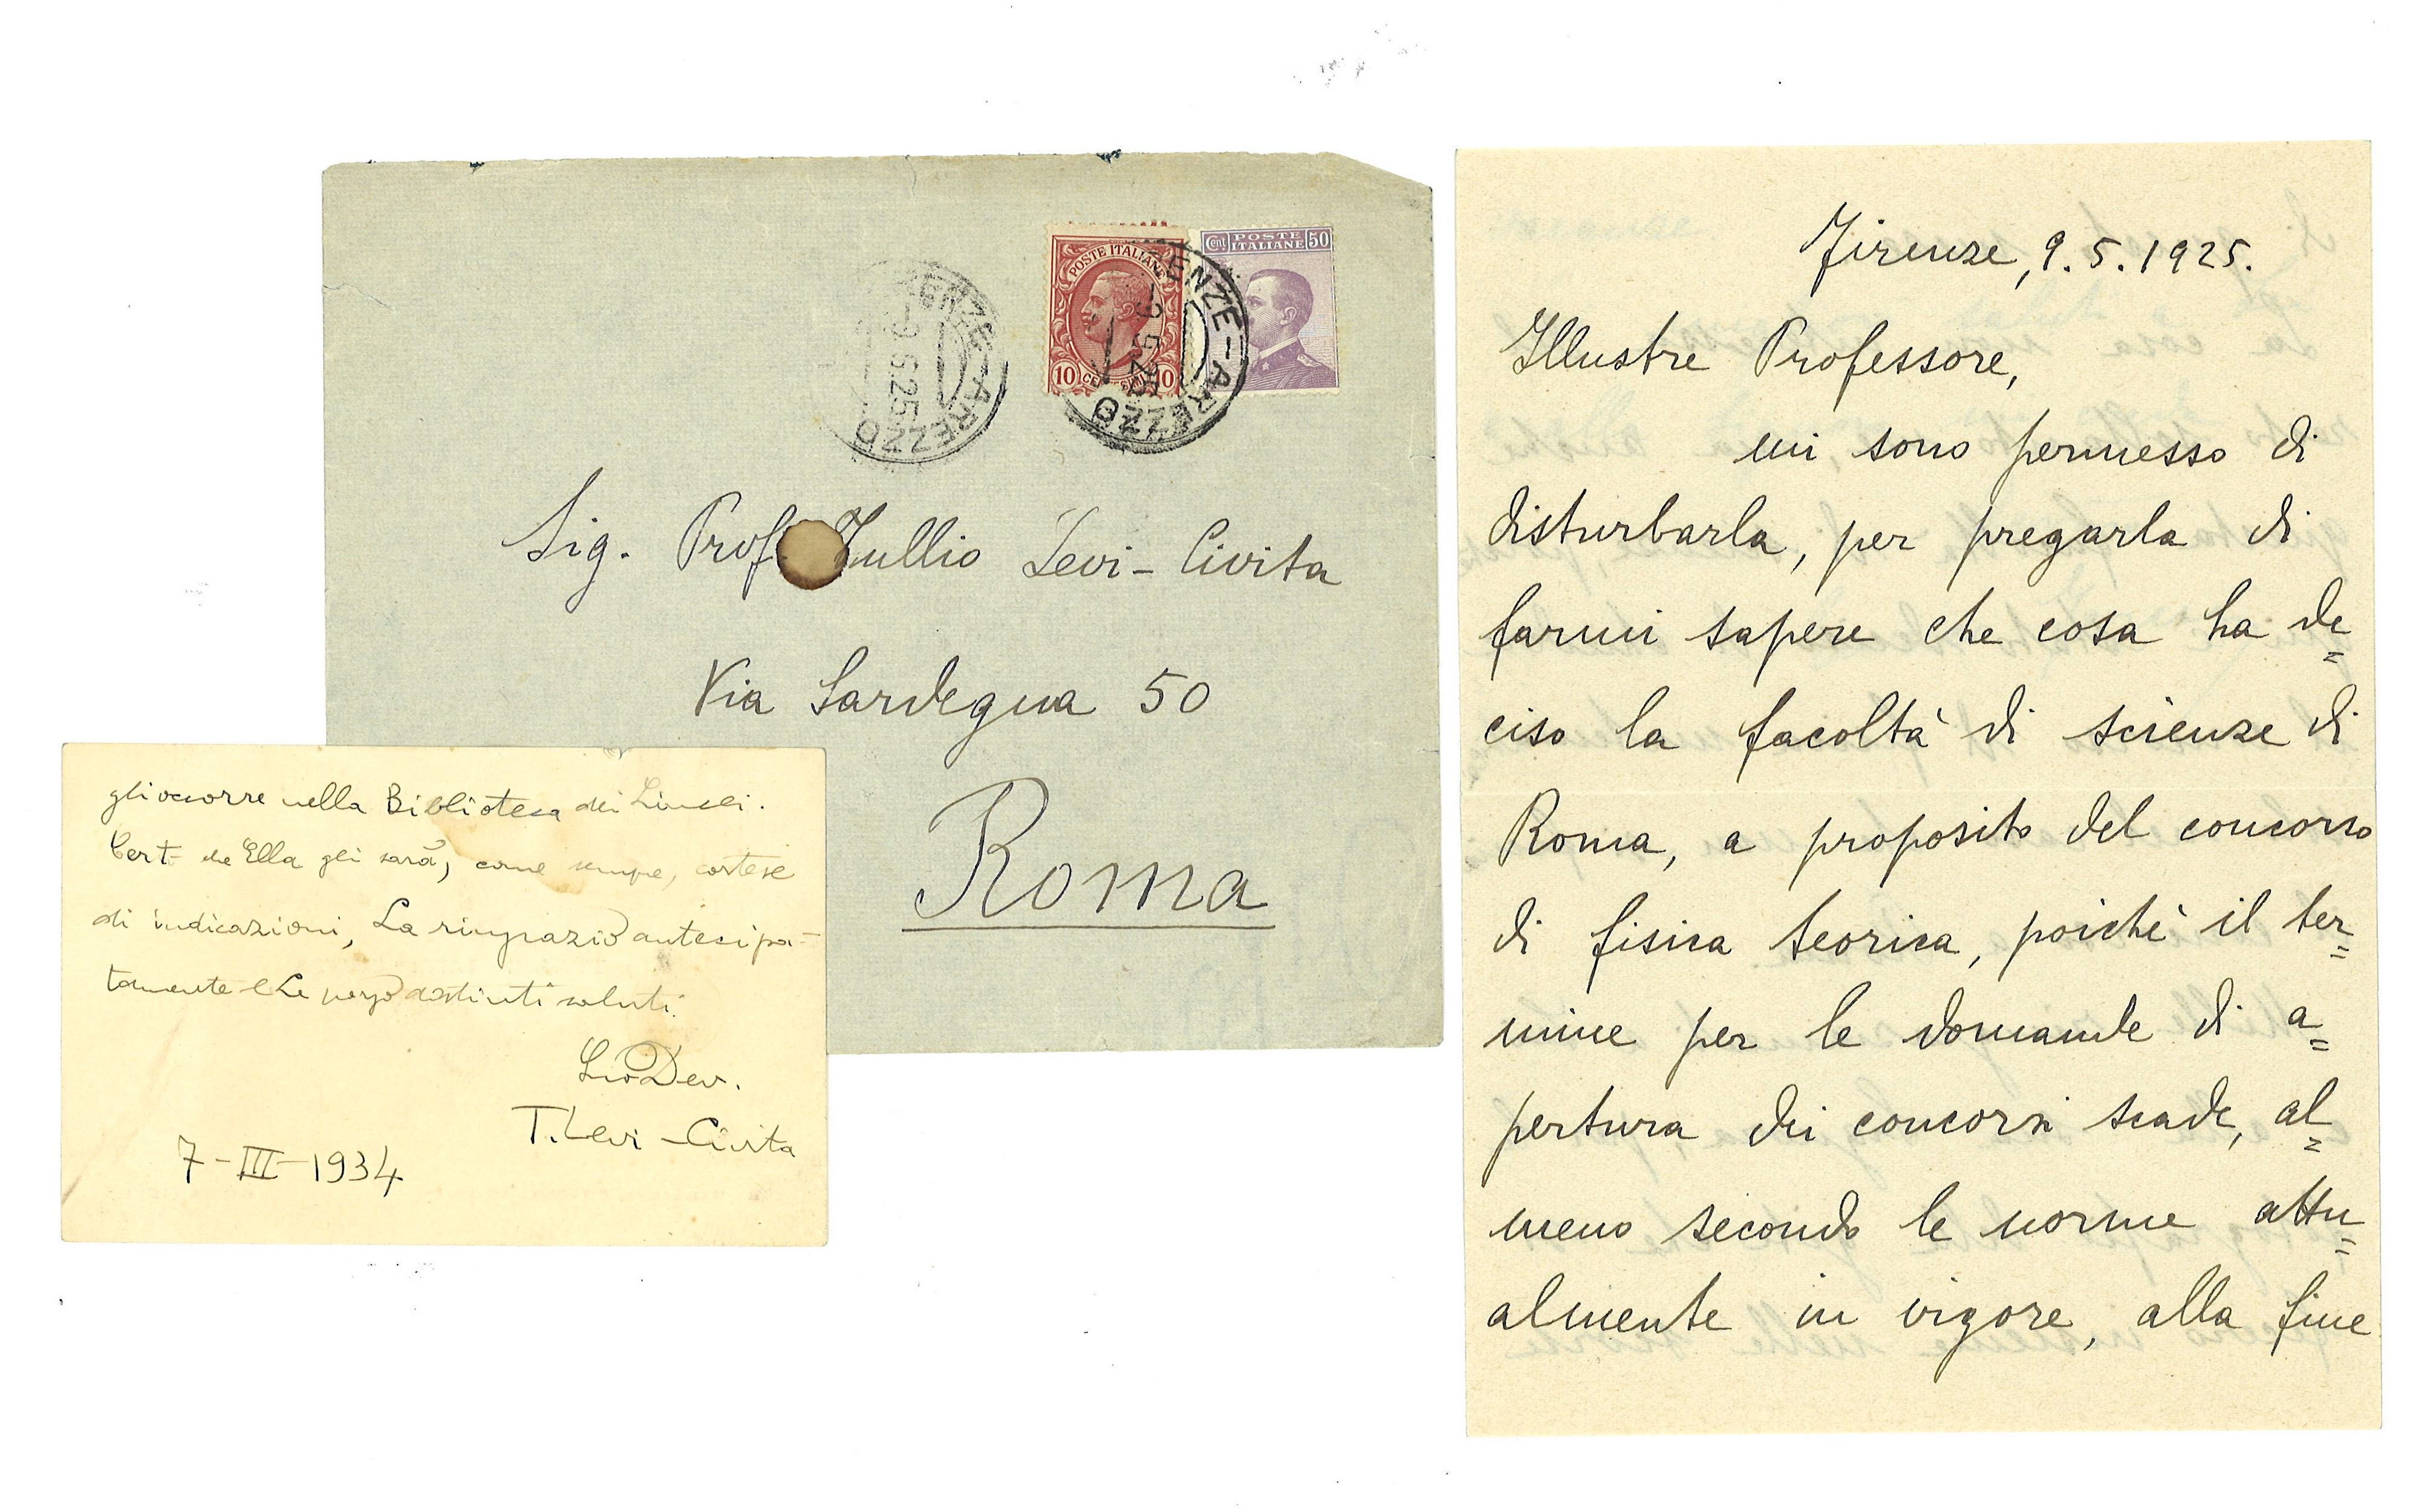 POSTE ITALIANE
10 CENTESIMI 10
Cent POSTE ITALIANE 50
ENZE - AREZZO
-9.5.25
ENZE - AREZZO
Sig. Prof. Tullio Levi-Civita
Via Sardegna 50
Roma
gli occorre nella Biblioteca dei Lincei.
Cert che Ella gli sarà, come sempre, cortese
di indicazioni, La ringrazio anticipa-
tamente e Le porgo distinti saluti.
Suo Dev.
T. Levi-Civita
7-III-1934
Firenze, 9.5.1925.
Illustre Professore,
mi sono permesso di
disturbarla, per pregarla di
farmi sapere che cosa ha de=
ciso la facoltà di scienze di
Roma, a proposito del concorso
di fisica teorica, poichè il ter=
mine per le domande di a=
pertura dei concorsi scade, al=
meno secondo le norme attu=
almente in vigore, alla fine